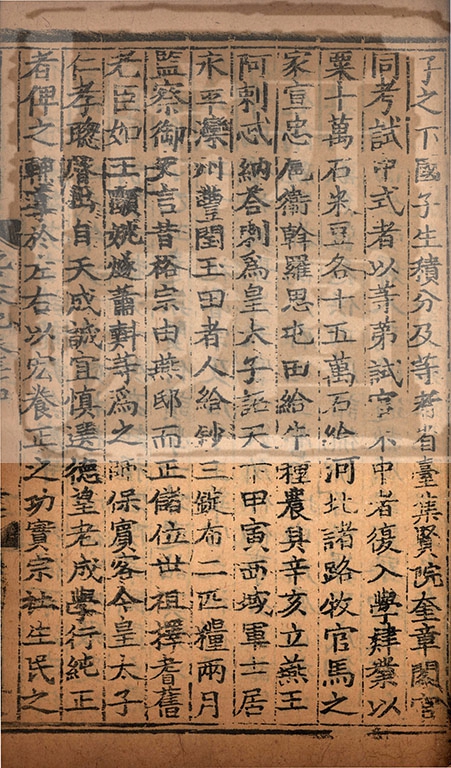 子之下國子生積分及等者省臺集賢院奎章閣官
同考試中式者以等第試官不中者復入學肄業以
粟十萬石米豆各十五萬石給河北諸路牧官馬之
家宣忠扈衞斡羅思屯田給牛種農具辛亥立燕王
阿剌忒納荅剌爲皇太子詔天下甲寅西域軍士居
永平灤州豐閏玉田者人給鈔三錠布二匹糧兩月
監察御史言昔裕宗由燕邸而正儲位世祖擇耆舊
老臣如王顒姚燧蕭㪺等爲之師保賓客今皇太子
仁孝聰睿出自天成誠宜慎選德望老成學行純正
者俾之輔導於左右以宏養正之功實宗社生民之